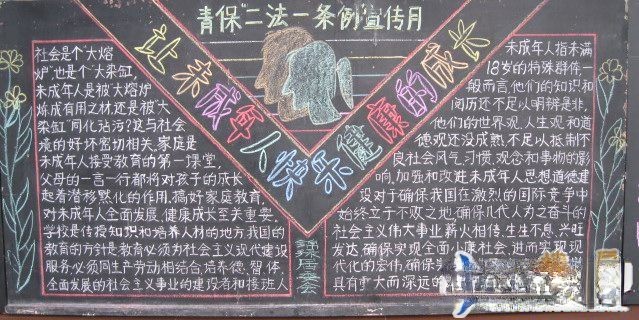 青保"二法一条例"宣传月
让未成年人快乐健康的成长
社会是个"大熔
炉"也是个"大染缸,
未成年人是被"大熔炉
炼成有用之材还是被"大
染缸"同化沾污?这与社会
境的好坏密切相关.家庭是
未成年人接受教育的第一课堂,
父母的一言一行都将对孩子的成长
起着潜移默化的作用.搞好家庭教育,
对未成年人全面发展,健康成长至关重要.
学校是传授知识和培养人材的地方我国的
教育的方针是教育必须为社会主义现代建设
服务,必须同生产劳动相结合,培养德、智、体、
全面发展的社会主义事业的建设者和接班人
未成年人指未满
18岁的特殊群体,一
般而言他们的知识和
阅历还不足以明辨是非,
他们的世界观,人生观和道
德观还没成熟,不足以抵制不
良社会风气,习惯,观念和事物的影
响,加强和改进未成年人思想道德建
设对于确保我国在激烈的国际竞争中
始终立于不败之地,确保几代人为之奋斗的
社会主义伟大事业薪火相传,生生不息,兴旺
发达,确保实现全面小康社会,进而实现现
代化的宏伟,确保
具有重大而深远的
居委会